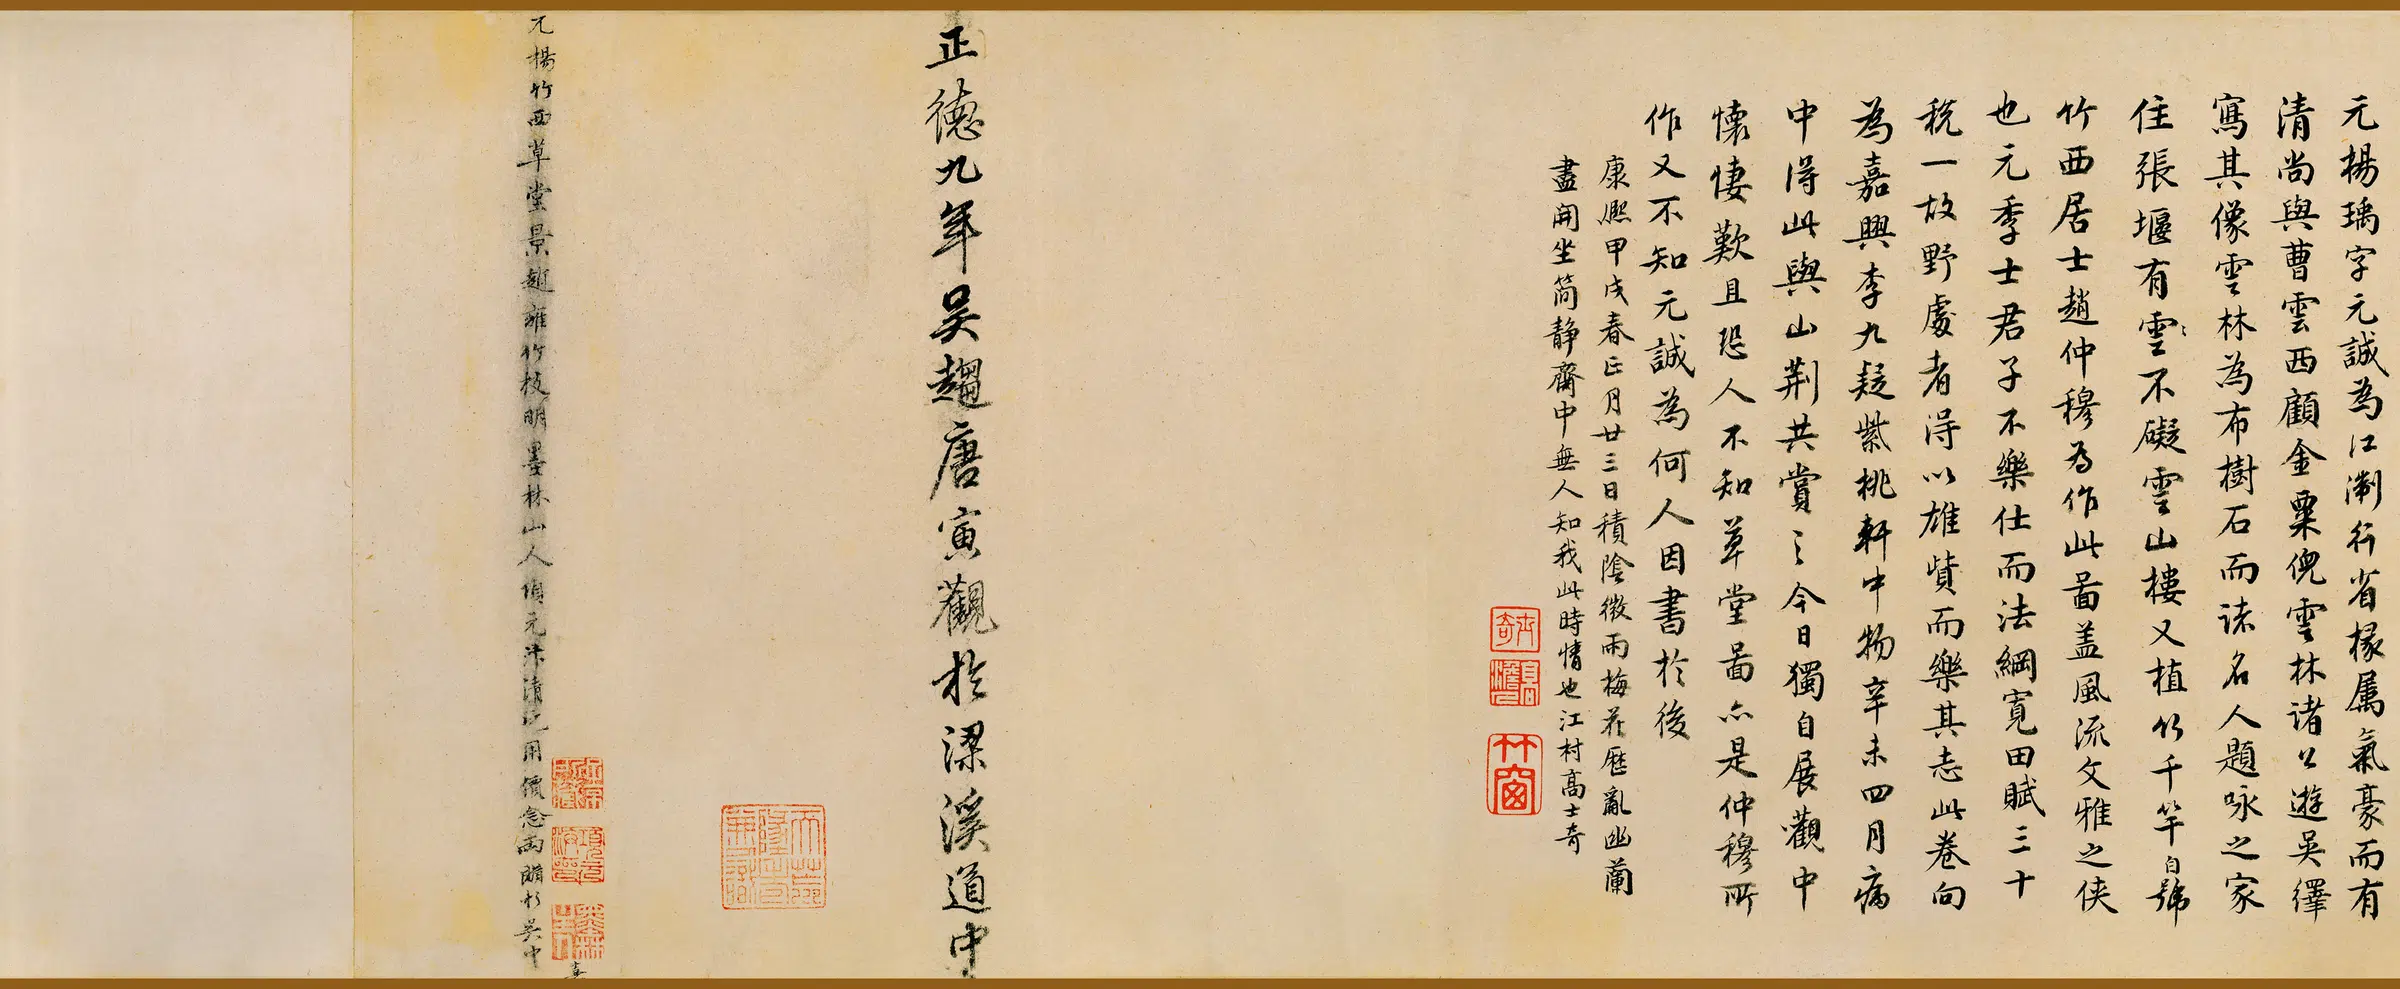 元楊瑀字元誠為江浙行省掾属氣豪而有
清尚與曹雲西顧金粟倪雲林諸公遊吳繹
寫其像雲林為布樹石而諸名人題咏之家
住張堰有雲雲不礙雲山樓又植竹千竿自號
竹西居士趙仲穆為作此啚盖風流文雅之侠
也元季士君子不樂仕而法網寬田賦三十
稅一故野處者得以雄貲而樂其志此卷向
為嘉興李九疑紫桃軒中物辛未四月病
中得此與山荆共賞之今日獨自展觀中
懷悽歎且恐人不知草堂啚亦是仲穆所
作又不知元誠為何人因書於後
康熈甲戌春正月廿三日積陰微雨梅花歷亂幽蘭
盡開坐簡静齋中無人知我此時情也江村高士奇
士奇
竹窗
正德九年吴趨唐寅觀於梁溪道中
元楊竹西草堂景趙雍竹枝明墨林山人項元汴清玩用價壹兩購於吴中